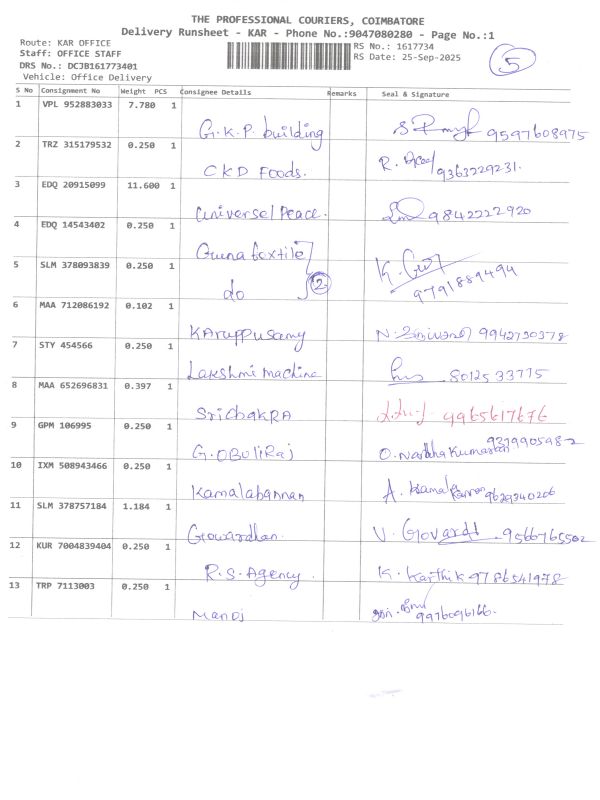 THE PROFESSIONAL COURIERS, COIMBATORE
Delivery Runsheet - KAR - Phone No.:9047080280 - Page No.:1
Route: KAR OFFICE
RS No.: 1617734
Staff: OFFICE STAFF
RS Date: 25-Sep-2025
5
DRS No.: DCJB161773401
Vehicle: Office Delivery
S No Consignment No Weight PCS Consignee Details Remarks Seal & Signature
1 VPL 952883033 7.780 1
G.K.P. building 9597608975
2 TRZ 315179532 0.250 1
CKD Foods. 9363229231.
3 EDQ 20915099 11.600 1
Universel Peace. 9842222920
4 EDQ 14543402 0.250 1
Guna textile
5 SLM 378093839 0.250 1
do 2 9791889494
6 MAA 712086192 0.102 1
KAruppusamy 9942730378
7 STY 454566 0.250 1
Lakshmi machine 8012533775
8 MAA 652696831 0.397 1
SriChakRA 9965617676
9 GPM 106995 0.250 1
G.OBuliRaj
10 IXM 508943466 0.250 1
Kamalabannan
11 SLM 378757184 1.184 1
Gowardhan. V. Govardh 9566765502
12 KUR 7004839404 0.250 1
R.S. Agency. K. Karthik 9786541978
13 TRP 7113003 0.250 1
Manoj 9976096166.